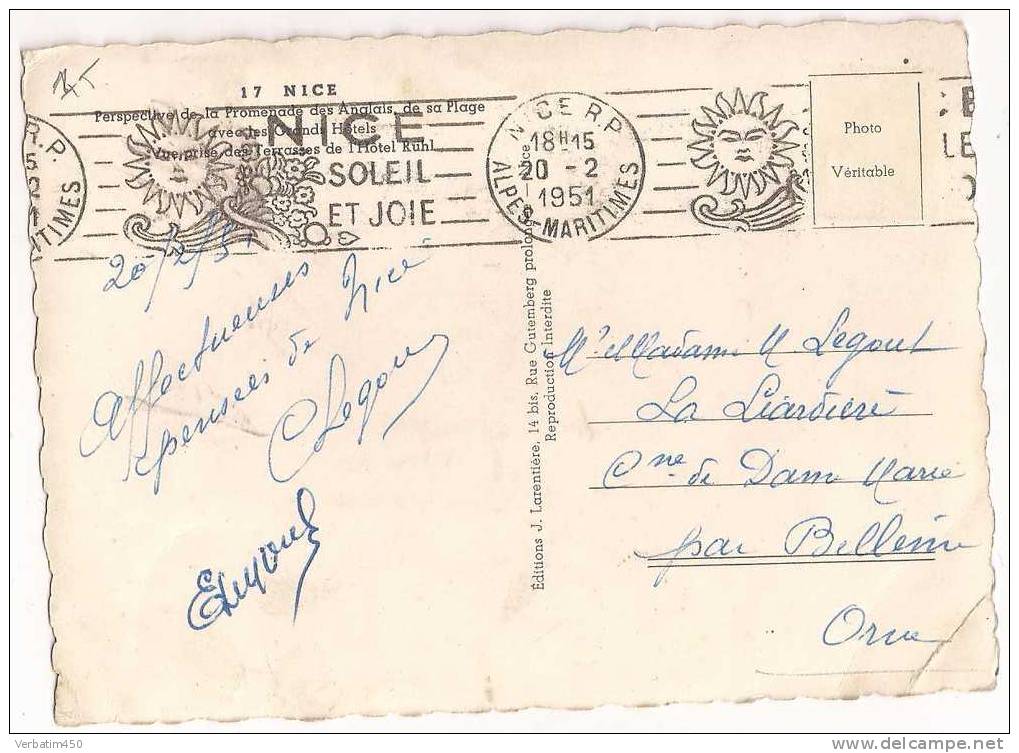 17 NICE
Perspective de la Promenade des Anglais, de sa Plage
avec les Grands Hôtels
Vue prise des Terrasses de l'Hôtel Ruhl
NICE
SOLEIL
ET JOIE
NICE R.P.
18H15
20 -2
1951
ALPES-MARITIMES
Photo
Véritable
20/2/51
Affectueuses
pensées de Nice
Legout
Editions J. Larentière, 14 bis, Rue Gutemberg prolongée Nice
Reproduction Interdite
Mr et Madame M Legout
La Liardière
Cne de Dame Marie
par Bellême
Orne
Verbatim450
www.delcampe.net